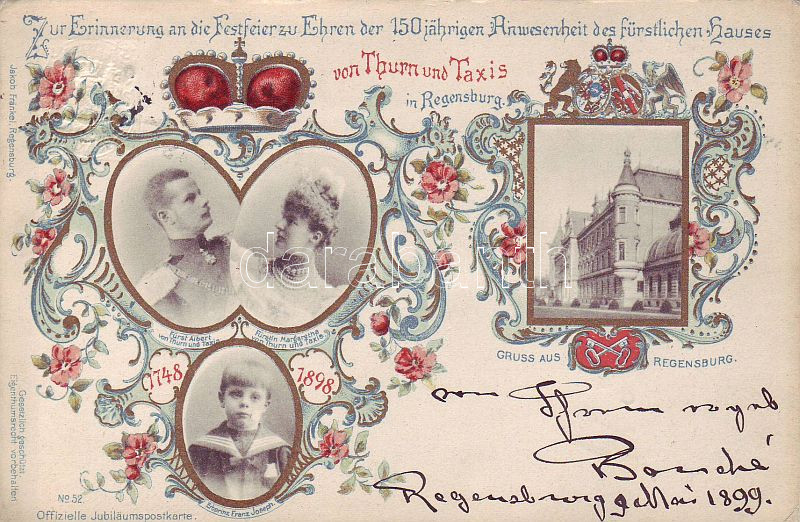 Zur Erinnerung an die Festfeier zu Ehren der 150jährigen Anwesenheit des fürstlichen Hauses
von Thurn und Taxis
in Regensburg.
Jakob Fränkel, Regensburg.
Fürst Albert
von Thurn und Taxis
Fürstin Margarethe
von Thurn und Taxis
1748
1898
Erbprinz Franz Joseph.
GRUSS AUS REGENSBURG.
von
Regensburg Mai 1899.
Gesetzlich geschützt
Eigenthumsrecht vorbehalten
No 52.
Offizielle Jubiläumspostkarte.
darabanth